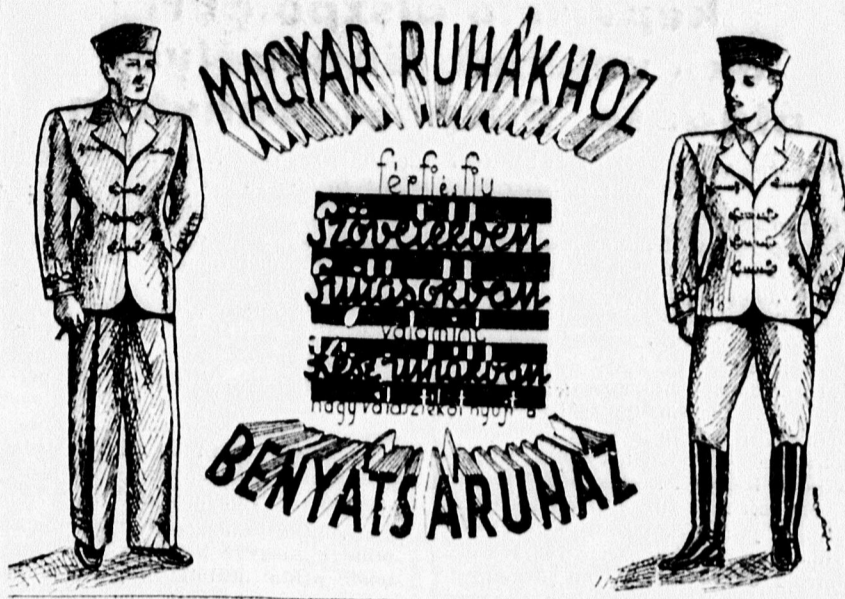 MAGYAR RUHÁKHOZ
férfi és fiu
Szövetekben
valamint
Kész ruhákban
nagy választékot nyujt a
BENYÁTS ÁRUHÁZ